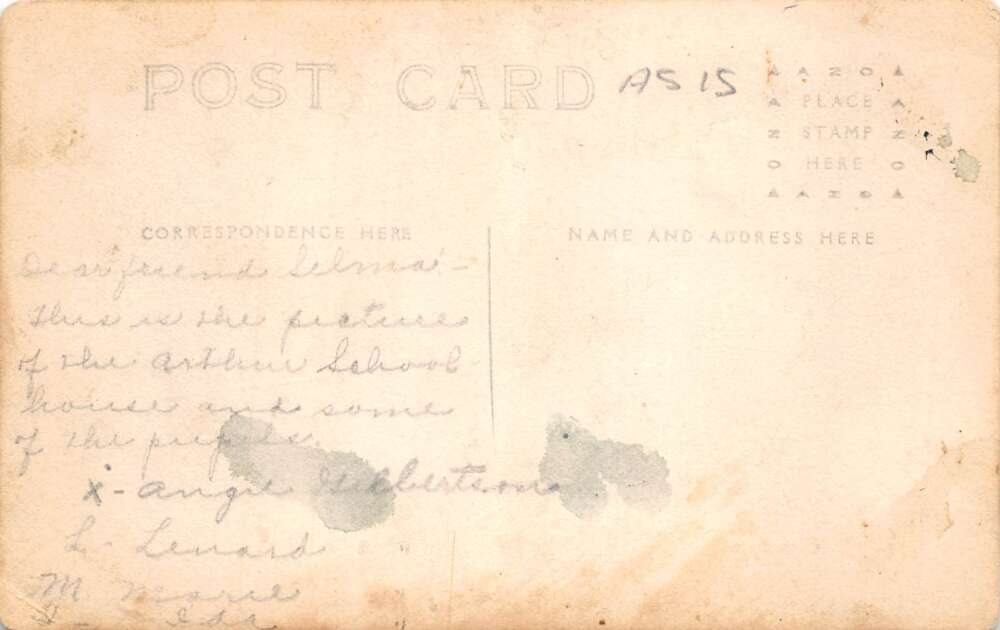 POST CARD
AS IS
AZO
PLACE
STAMP
HERE
AZO
CORRESPONDENCE HERE
NAME AND ADDRESS HERE
Dear friend Selma -
this is the picture
of the Arthur School
house and some
of the pupils.
x - Angie
L - Lenard "
M Marie
Ida "